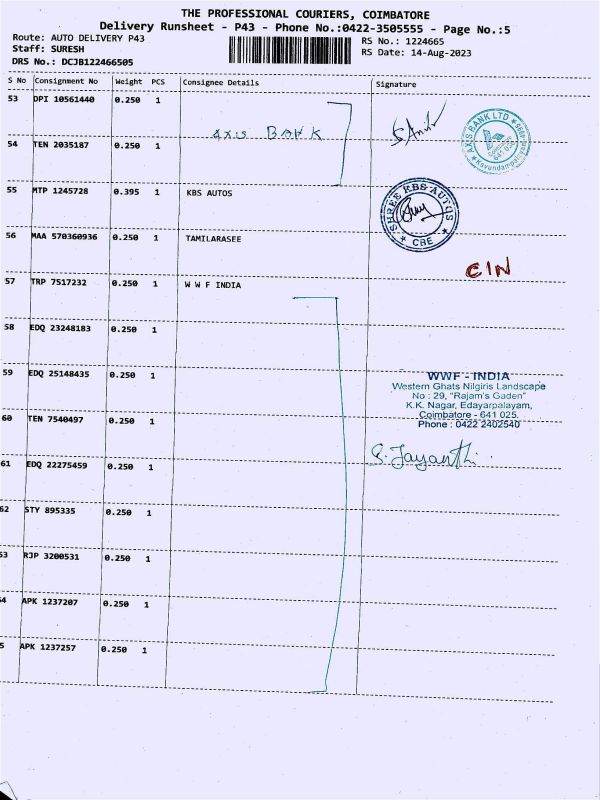 THE PROFESSIONAL COURIERS, COIMBATORE
Delivery Runsheet - P43 - Phone No.:0422-3505555 - Page No.:5
Route: AUTO DELIVERY P43
RS No.: 1224665
Staff: SURESH
RS Date: 14-Aug-2023
DRS No.: DCJB122466505
S No Consignment No Weight PCS Consignee Details Signature
53 DPI 10561440 0.250 1
AXIS BANK
54 TEN 2035187 0.250 1
AXIS BANK LTD
Kovundampalayam
641 030
55 MTP 1245728 0.395 1 KBS AUTOS
SHREE KBS AUTOS
CBE
56 MAA 570360936 0.250 1 TAMILARASEE
CIN
57 TRP 7517232 0.250 1 W W F INDIA
58 EDQ 23248183 0.250 1
59 EDQ 25148435 0.250 1
WWF - INDIA
Western Ghats Nilgiris Landscape
No : 29, "Rajam's Gaden"
K.K. Nagar, Edayarpalayam,
Coimbatore - 641 025.
Phone : 0422 2402540
60 TEN 7540497 0.250 1
S. Jayanthi
61 EDQ 22275459 0.250 1
62 STY 895335 0.250 1
53 RJP 3200531 0.250 1
4 APK 1237207 0.250 1
5 APK 1237257 0.250 1